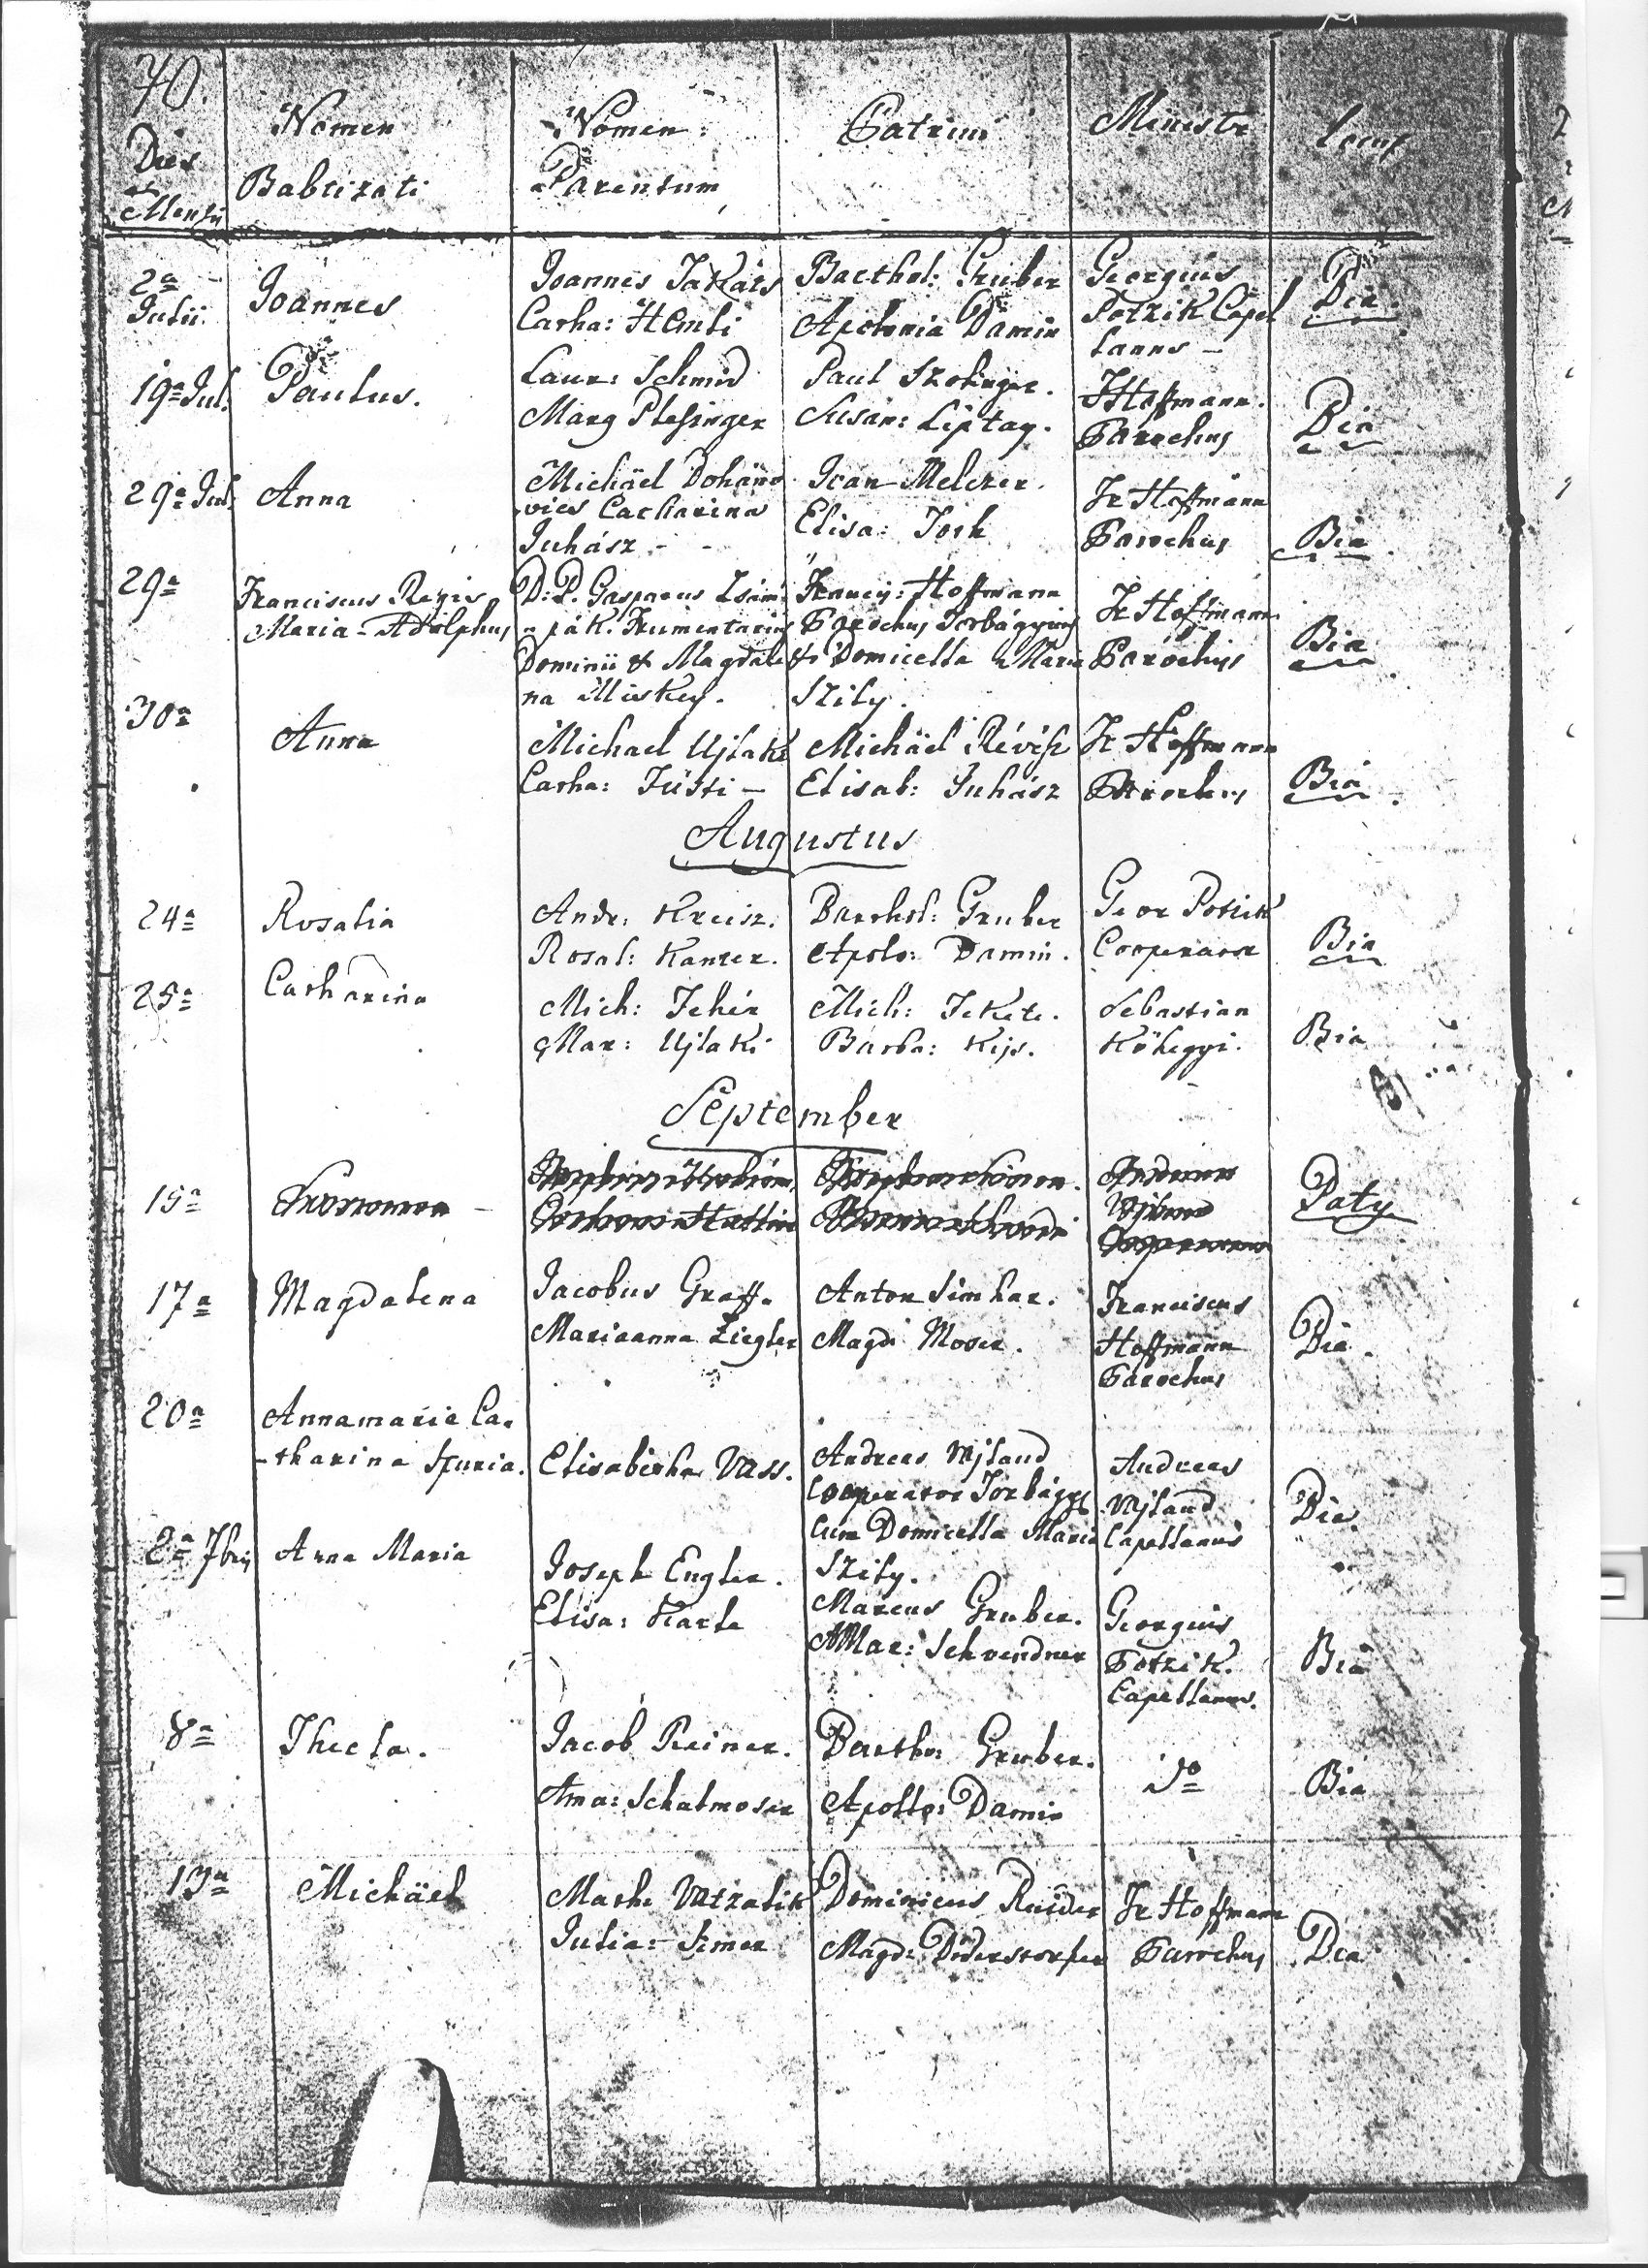 70.
Dies et Mensis
Nomen Babtizati
Nomen Parentum
Patrini
Ministr
Locus
2a Julii
Joannes
Joannes Takáts
Catha: Hembi
Barthol: Gruber
Apolonia Damin
Georgius
Potzik Capel
lanus —
Bia.
19a Jul.
Paulus.
Laur: Schmid
Marg Plesinger
Paul Szolinger.
Susan: Liptay.
F Hoffmann.
Parochus
Bia
29a Jul.
Anna
Michäel Doháno
vics Catharina
Juhász - -
Joan Melczer.
Elisa: Joth
Fr Hoffmann
Parochus
Bia
29a
Franciscus Regis
Maria-Adolphus
D: P. Gasparus
Frumentarius
Dominii & Magdale
na Miskey.
Franc: Hoffmann
Parochus Torbágyius
& Domicella Maria
Szily.
Fr Hoffmann
Parochus
Bia
30a
Anna
Michael Ujlaki
Catha: Füsti —
Michäel Révész
Elisab: Juhász
Fr Hoffmann
Parochus
Bia
Augustus
24a
Rosalia
Andr: Kreisz.
Rosal: Kanzer.
Barthol: Gruber
Apolo: Damin.
Geor Potzik
Cooperator
Bia
25a
Catharina
Mich: Fehér
Mar: Ujlaki
Mich: Fekete.
Barba: Kis.
Sebastian
Köhegyi.
Bia
September
15a
Paty
17a
Magdalena
Jacobus Graff.
Marianna Ziegler
Anton Simhar.
Magd: Moser.
Franciscus
Hoffmann
Parochus
Bia.
20a
Annamaria Ca-
-tharina Spuria.
Elisabetha Vass.
Andreas Ujland
Cooperator Torbágy
Cum Domicella Maria
Szily.
Andreas
Ujland
Capellanus
Bia.
2a 7bris
Anna Maria
Joseph Engler.
Elisa: Karle
Marcus Gruber.
AMar: Schvendner
Georgius
Potzik.
Capellanus.
Bia
8a
Thecla.
Jacob Reiner.
Anna: Schalmoser
Bartho: Gruber.
Apollo: Damin
do
Bia
13a
Michäel
Math: Vatzalik
Julia: Simer
Dominicus Rieder
Magd: Diderstorfer
Fr Hoffmann
Parochus
Bia